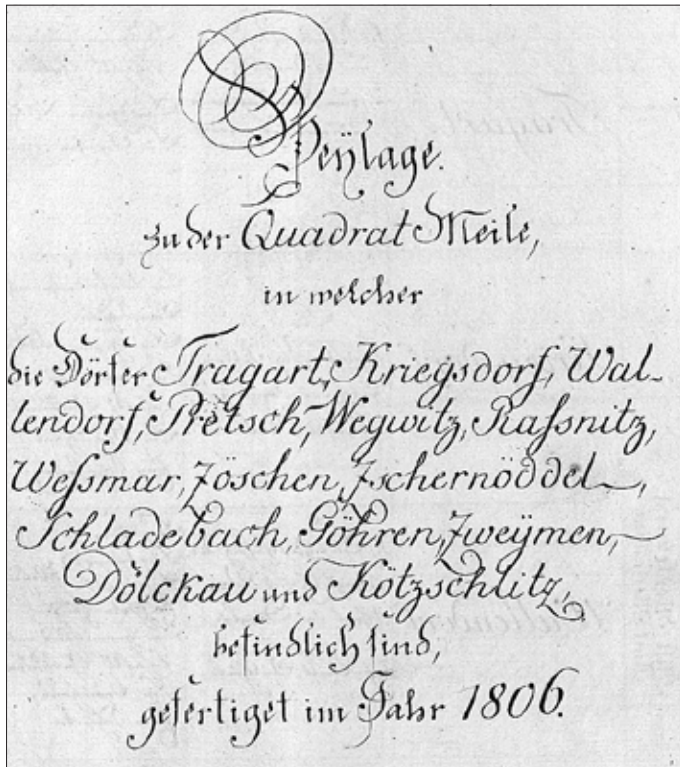 Beÿlage.
zu der Quadrat Meile,
in welcher
die Dörfer Tragart, Kriegsdorf, Wal-
lendorf, Pretsch, Wegwitz, Raſsnitz,
Weſsmar, Zöschen, Zschernöddel,
Schladebach, Göhren, Zweÿmen,
Dölckau und Kötzschlitz,
befindlich sind,
gefertiget im Jahr 1806.